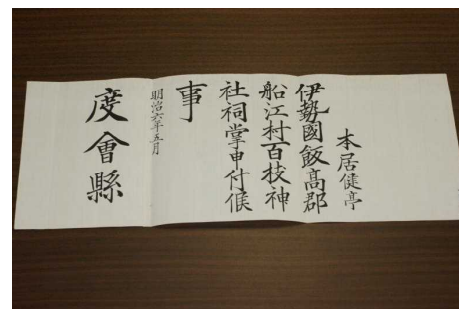 本居健亭
伊勢國飯高郡
船江村百枝神
社祠掌申付候
事
明治六年五月
度會縣